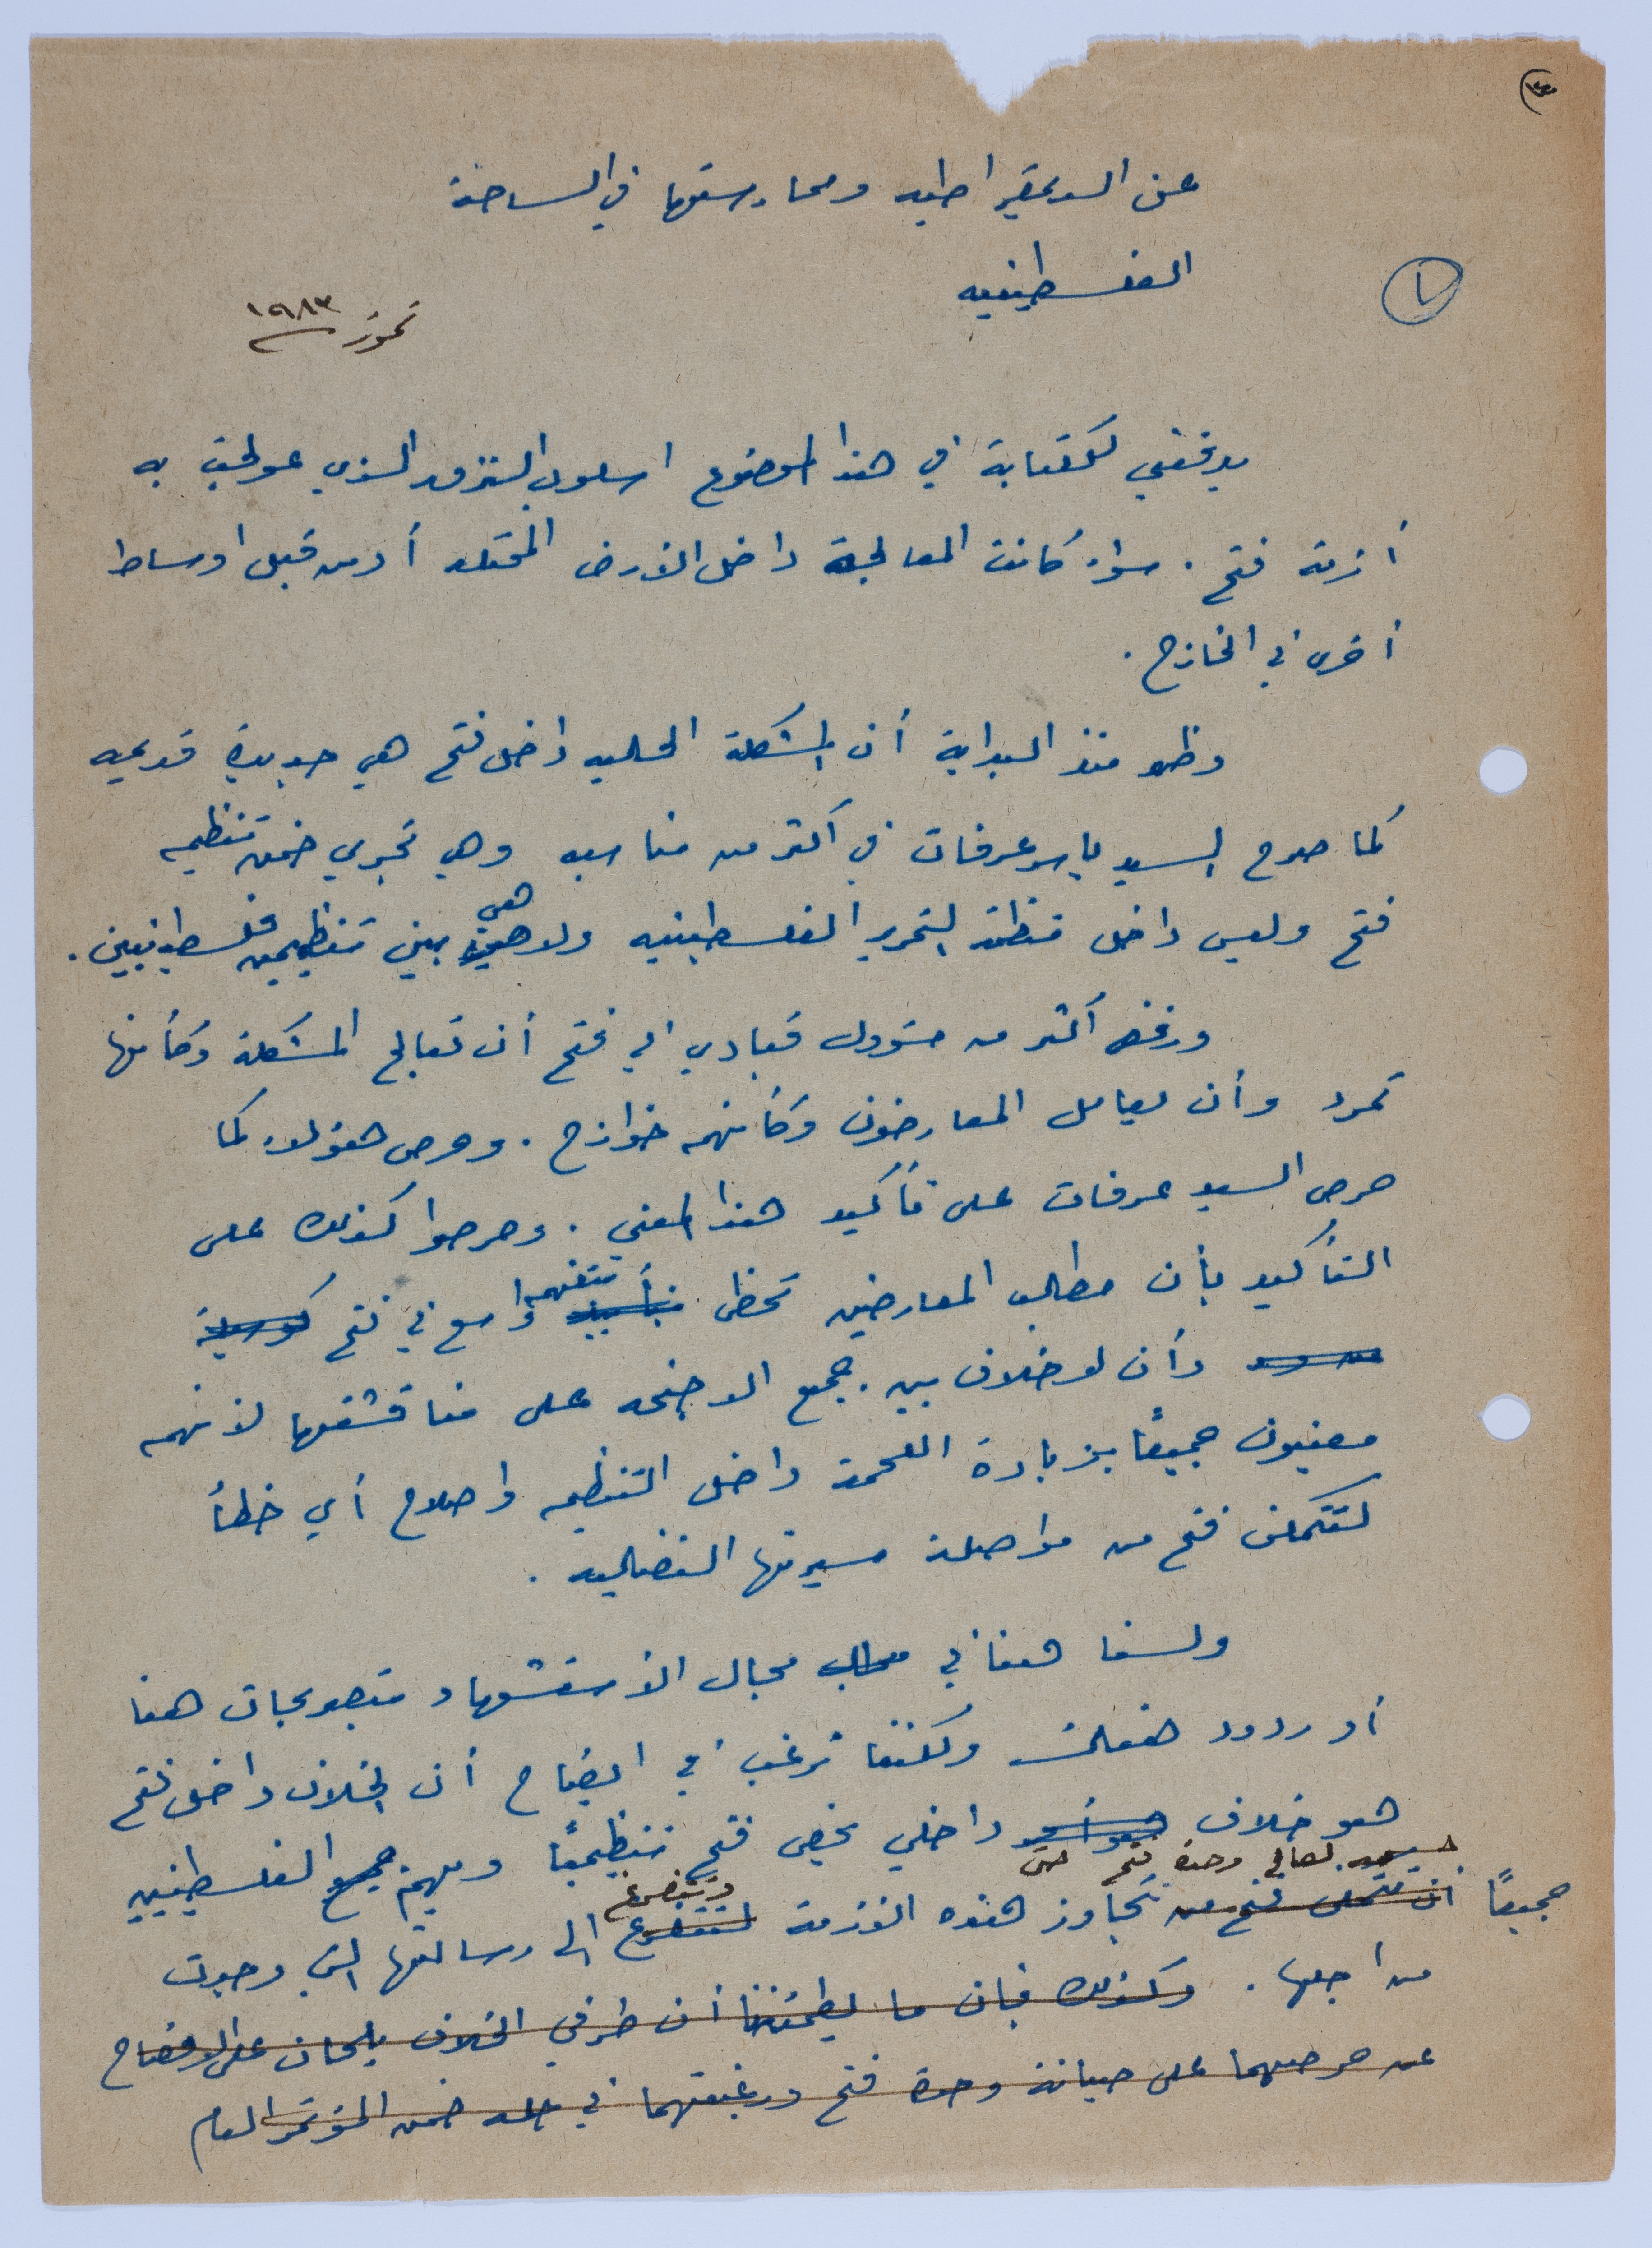 عن الديمقراطيه وممارستها في الساحة
الفلسطينيه
١
تموز ١٩٨٣
يدفعني للكتابة في هذا الموضوع اسلوب النزق الذي عولجت به
أزمة فتح . سواء كانت المعالجة داخل الارض المحتله أو من قبل اوساط
أخرى في الخارج .
وظهر منذ البداية أن المشكلة الحاليه داخل فتح هي جديدة قديمه
كما صرح السيد ياسر عرفات في اكثر من مناسبه وهي تجري ضمن تنظيم
فتح وليس داخل منظمة التحرير الفلسطينيه ولا هي بين تنظيمين فلسطينيين .
ورفض أكثر من مسؤول قيادي في فتح أن تعالج المشكلة وكأنها
تمرد وأن يعامل المعارضون وكأنهم خوارج . وحرص هؤلاء كما
حرص السيد عرفات على تأكيد هذا المعنى . وحرصوا كذلك على
التأكيد بأن مطالب المعارضين تحظى بتأييد بتفهم واسع في فتح
وأن لا خلاف بين جميع الاجنحه على مناقشتها لانهم
معنيون جميعًا بزيادة اللحمة داخل التنظيم واصلاح أي خطأ
لتتمكن فتح من مواصلة مسيرتها النضاليه .
ولسنا هنا في مجال الاستشهاد بتصريحات هنا
أو ردود هناك ولكننا نرغب في ايضاح أن الخلاف داخل فتح
هو خلاف داخلي يخص فتح تنظيميًا ويهم جميع الفلسطينيين
لصالح وحدة فتح حتى
جميعًا أن تتمكن فتح من تتجاوز هذه الازمة لتتفرغ وتتفرغ الى رسالتها التي وجدت
من اجلها . وكذلك فإن ما يطمئننا أن طرفي الخلاف يلحان على الافصاح
عن حرصهما على صيانة وحدة فتح ورغبتهما في حله ضمن المؤتمر العام